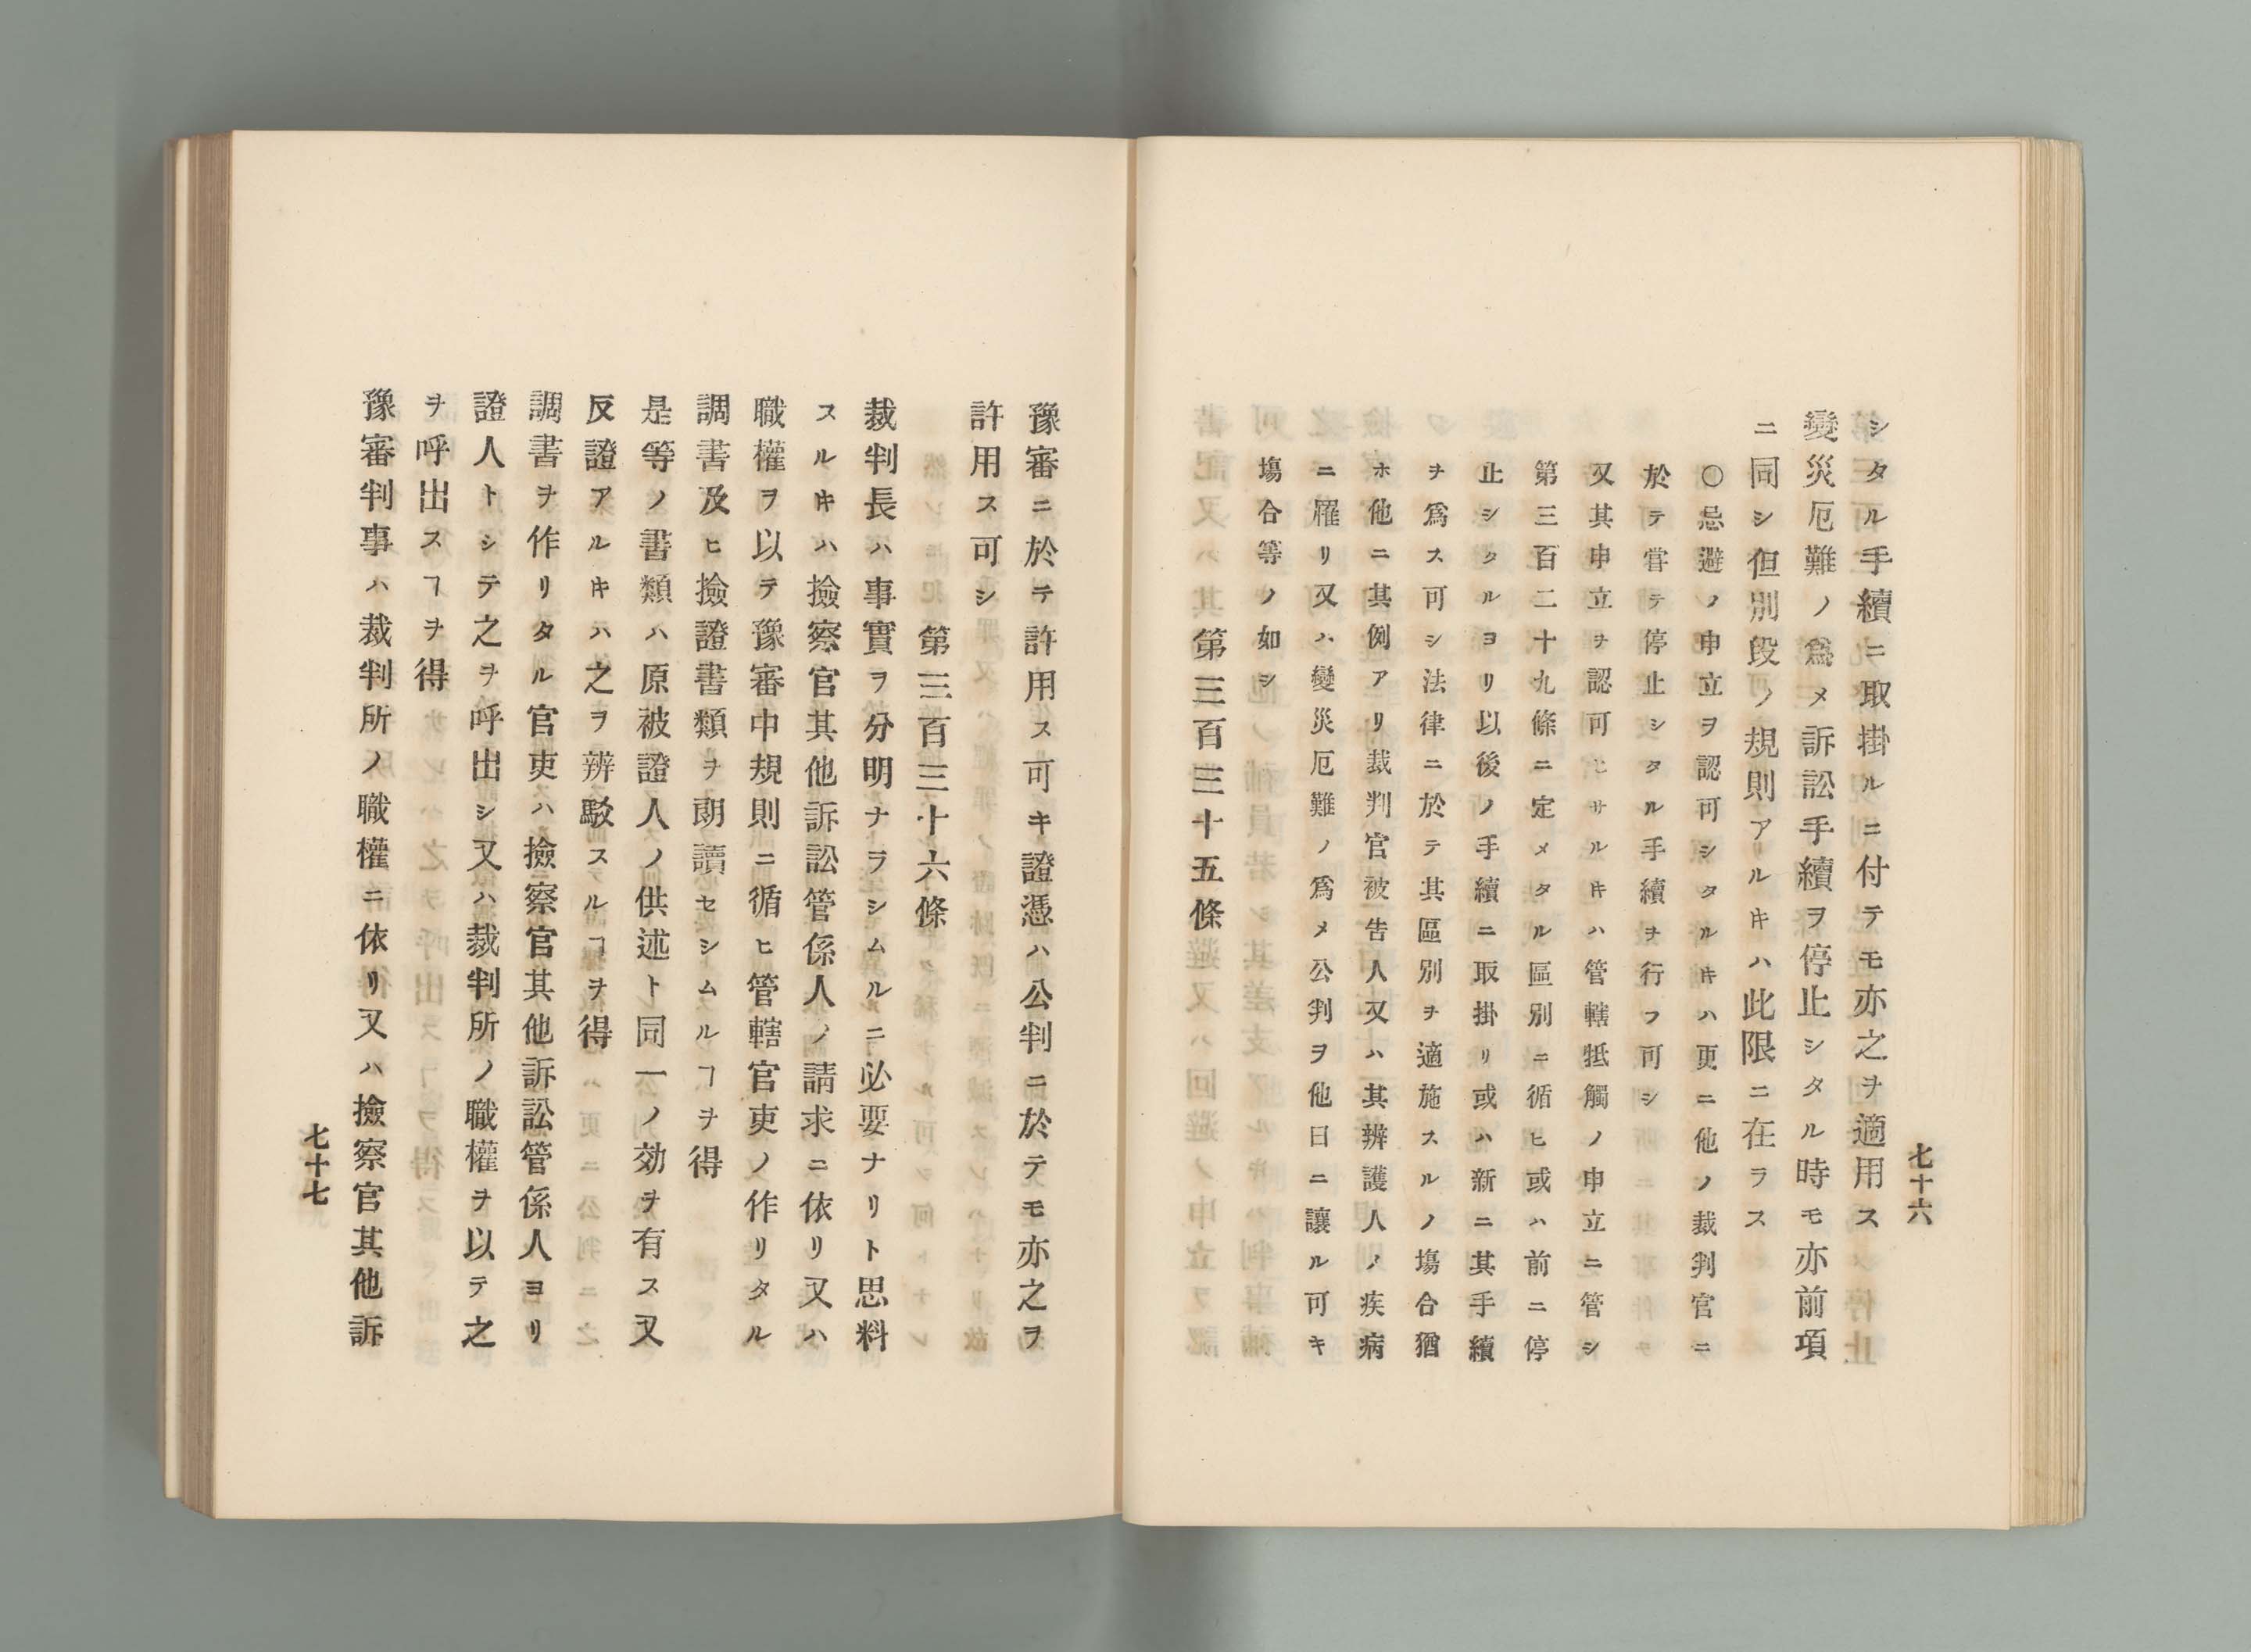 七十六
シタル手續ニ取掛ルニ付テモ亦之ヲ適用ス
變災厄難ノ爲メ訴訟手續ヲ停止シタル時モ亦前項
ニ同シ但別段ノ規則アリルキハ此限ニ在ラス
〇忌避ノ申立ヲ認可シタルキハ更ニ他ノ裁判官ニ
於テ嘗テ停止シタル手續ヲ行フ可シ
又其申立ヲ認可セサルキハ管轄牴觸ノ申立ニ管シ
第三百二十九條ニ定メタル區別ニ循ヒ或ハ前ニ停
止シタルヨリ以後ノ手續ニ取掛リ或ハ新ニ其手續
ヲ爲ス可シ法律ニ於テ其區別ヲ適施スルノ塲合猶
ホ他ニ其例アリ裁判官被告人又ハ其辨護人ノ疾病
ニ罹リ又ハ變災厄難ノ爲メ公判ヲ他日ニ讓ル可キ
塲合等ノ如シ
第三百三十五條
豫審ニ於テ許用ス可キ證憑ハ公判ニ於テモ亦之ヲ
許用ス可シ
第三百三十六條
裁判長ハ事實ヲ分明ナラシムルニ必要ナリト思料
スルキハ撿察官其他訴訟管係人ノ請求ニ依リ又ハ
職權ヲ以テ豫審中規則ニ循ヒ管轄官吏ノ作リタル
調書及ヒ撿證書類ヲ朗讀セシムルヿヲ得
是等ノ書類ハ原被證人ノ供述ト同一ノ効ヲ有ス又
反證アルキハ之ヲ辨駁スルヿヲ得
調書ヲ作リタル官吏ハ撿察官其他訴訟管係人ヨリ
證人トシテ之ヲ呼出シ又ハ裁判所ノ職權ヲ以テ之
ヲ呼出スヿヲ得
豫審判事ハ裁判所ノ職權ニ依リ又ハ撿察官其他訴
七十七